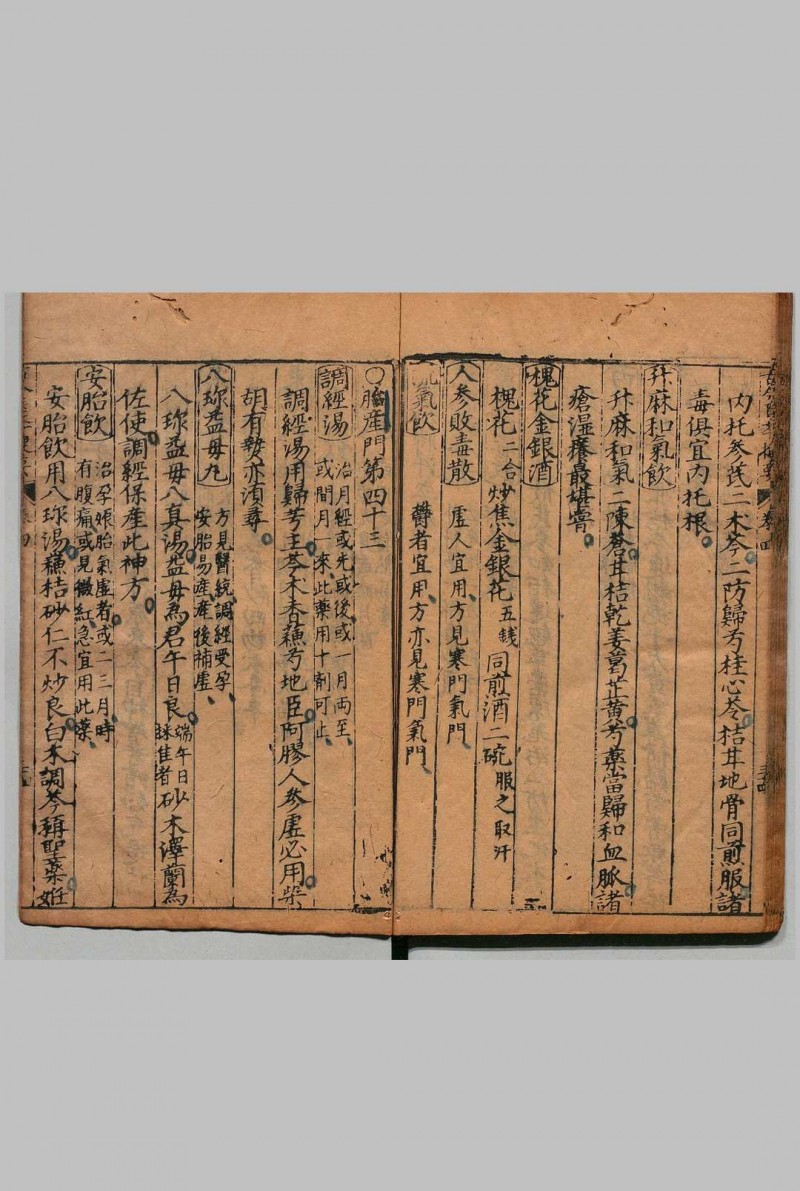 內托參芪二术苓二防歸芍桂心苓桔甘地骨同煎服諸
毒俱宜內托根
升麻和氣飲
升麻和氣二陳蒼甘桔乾姜葛芷黃芍藥當歸和血脈諸
瘡湿癢最堪嘗
槐花金銀酒
槐花二合炒焦金銀花五錢同前酒二碗服之取汗
人參敗毒散 虛人宜用方見寒門
氣飲 鬱者宜用方亦見寒門氣門
○胎產門第四十三
調經湯 治月經或先或後或一月两至
或間月一來此藥用十劑可止
調經湯用歸芎主苓术香蘓芍地臣阿膠人參虛必用柴
胡有熱亦湏尋
八珎益毋丸 方見醫統調經受孕
安胎易産産後補虛
八珎益毋八真湯益毋為君午日良端午日
採佳者砂木澤蘭為
佐使調經保産此神方
安胎飲 治孕娘胎氣虛者或二三月時
有腹痛或見微紅急宜用此藥
安胎飲用八珎湯蘓桔砂仁不炒良白术調芩稱聖藥妊